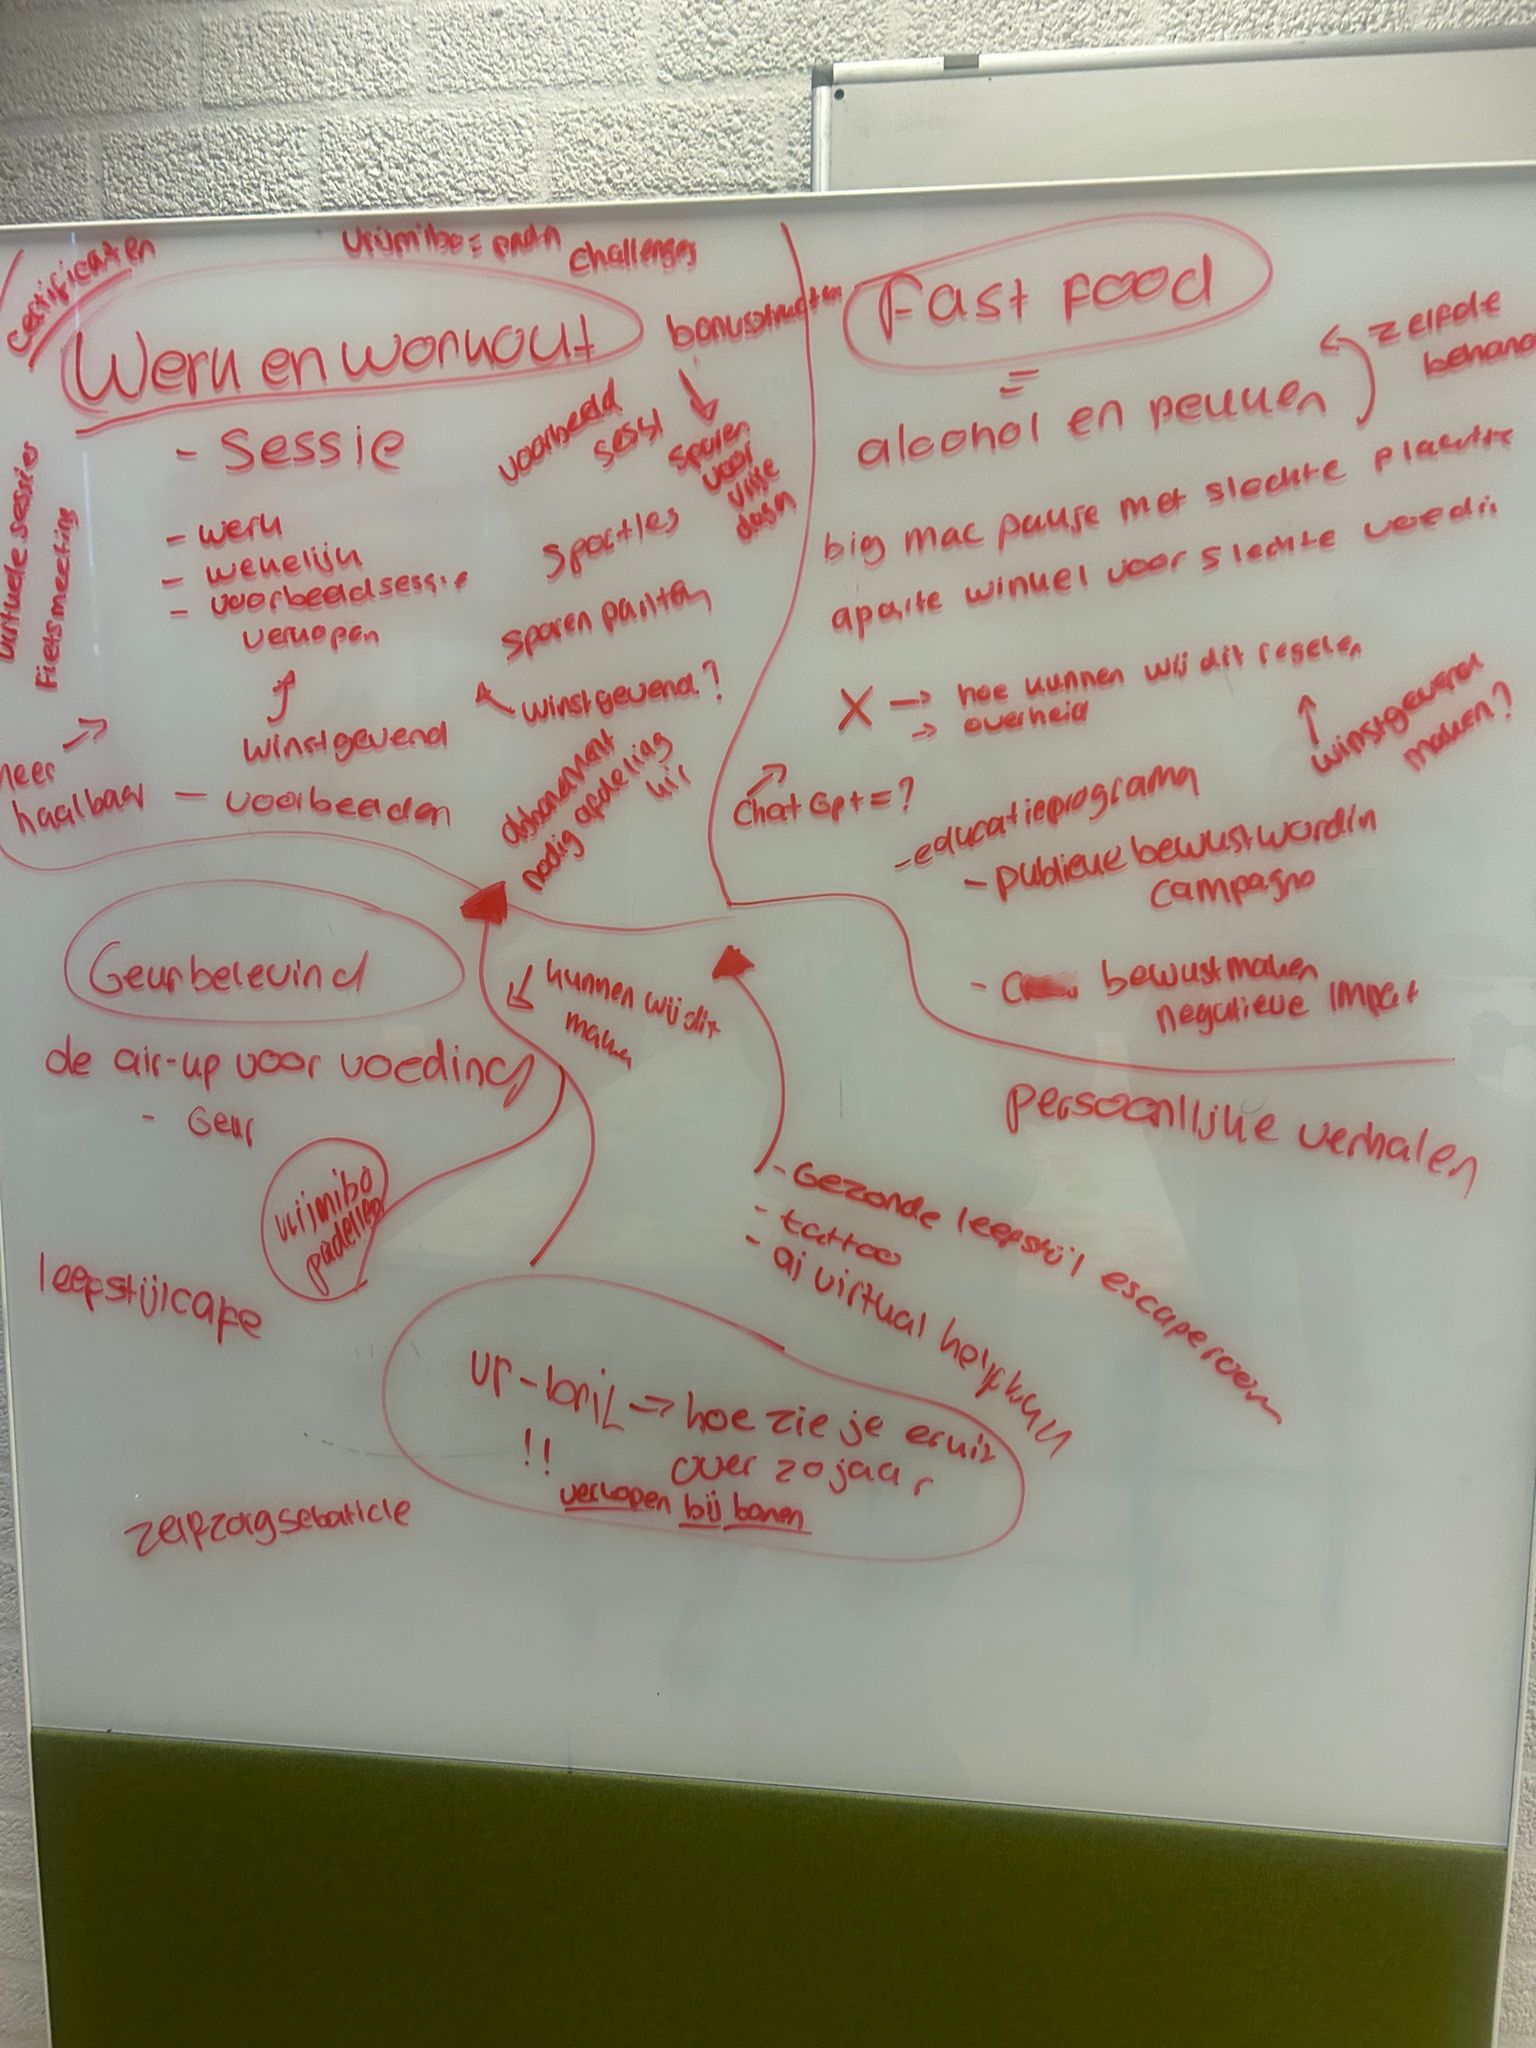 certificaten
vrijmibo = padn
challenges
Werk en workout
bonusstructen
- sessie
voorbeeld
sessi
sparen
voor
vrije
dagn
- werk
- wekelijk
- voorbeeldsessie
verkopen
winstgevend
- voorbeelden
haalbaar
virtuele sessies
Fietsmeeting
Sportles
sparen punten
winstgevend?
abbonement
nodig afdeling
hir
Fast food
=
alcohol en peuken
zelfde
behand
big mac pauze met slechte plaatje
aparte winkel voor slechte voedi
X → hoe kunnen wij dit regelen
→ overheid
winstgevend
maken?
Chat Gpt = ?
- educatieprograma
- publieke bewustwordin
campagne
- bewustmaken
negatieve impact
Geurbelevind
de air-up voor voeding
- Geur
kunnen wij dit
maken
vrijmibo
padellen
leefstijlcafe
persoonlijke verhalen
- Gezonde leefstijl escaperoom
- tattoo
- ai virtual help
vr-bril → hoe zie je eruit
!! over 20 jaar
verkopen bij banen